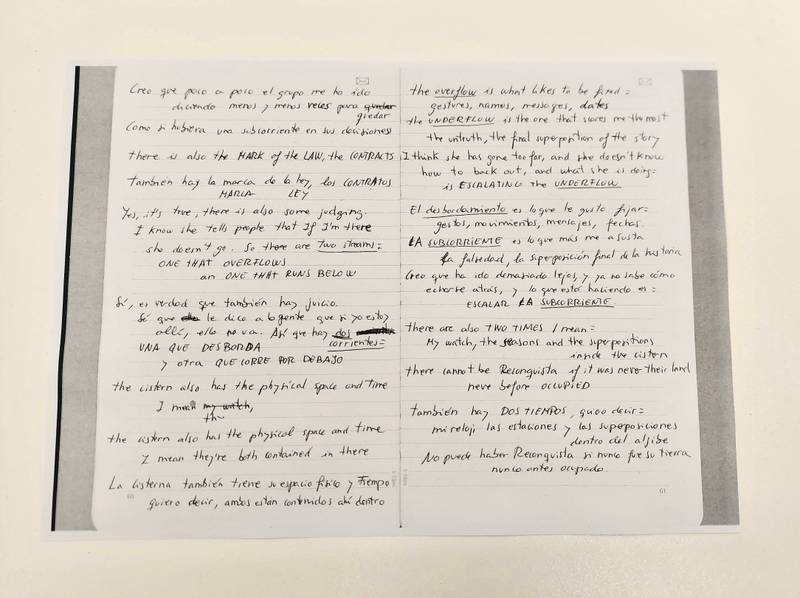 Creo que poco a poco el grupo me ha ido
diciendo menos y menos veces para quedar
quedar
Como si hubiera una subcorriente en sus decisiones
there is also the MARK of the LAW, the CONTRACTS
también hay la marca de la ley, los CONTRATOS
MARCA LEY
Yes, it's true, there is also some judging.
I know she tells people that If I'm there
she doesn't go. So there are Two streams:
ONE THAT OVERFLOWS
an ONE THAT RUNS BELOW
Sí, es verdad que también hay juicio.
Sé que le dice a la gente que si yo estoy
allí, ella no va. Así que hay dos
corrientes:
UNA QUE DESBORDA
y otra QUE CORRE POR DEBAJO
the cistern also has the physical space and time
I mean my watch,
th
the cistern also has the physical space and time
I mean they're both contained in there
La cisterna también tiene su espacio físico y Tiempo
quiero decir, ambos están contenidos ahí dentro
60
the overflow is what likes to be fixed:
gestures, names, messages, dates
the UNDERFLOW is the one that scares me the most
the untruth, the final superposition of the story
I think she has gone too far, and she doesn't know
how to back out, and what she is doing:
is ESCALATING the UNDERFLOW
El desbordamiento es lo que le gusta fijar:
gestos, movimientos, mensajes, fechas.
LA SUBCORRIENTE es lo que más me asusta
La falsedad, la superposición final de la historia
Creo que ha ido demasiado lejos, y ya no sabe cómo
echarse atrás, y lo que está haciendo es:
ESCALAR LA SUBCORRIENTE.
there are also TWO TIMES I mean:
My watch, the seasons and the superpositions
inside the cistern
there cannot be Reconquista if it was never their land
never before OCCUPIED
también hay DOS TIEMPOS, quiero decir:
mi reloj, las estaciones y las superposiciones
dentro del aljibe
No puede haber Reconquista si nunca fue su tierra
nunca antes ocupado.
61